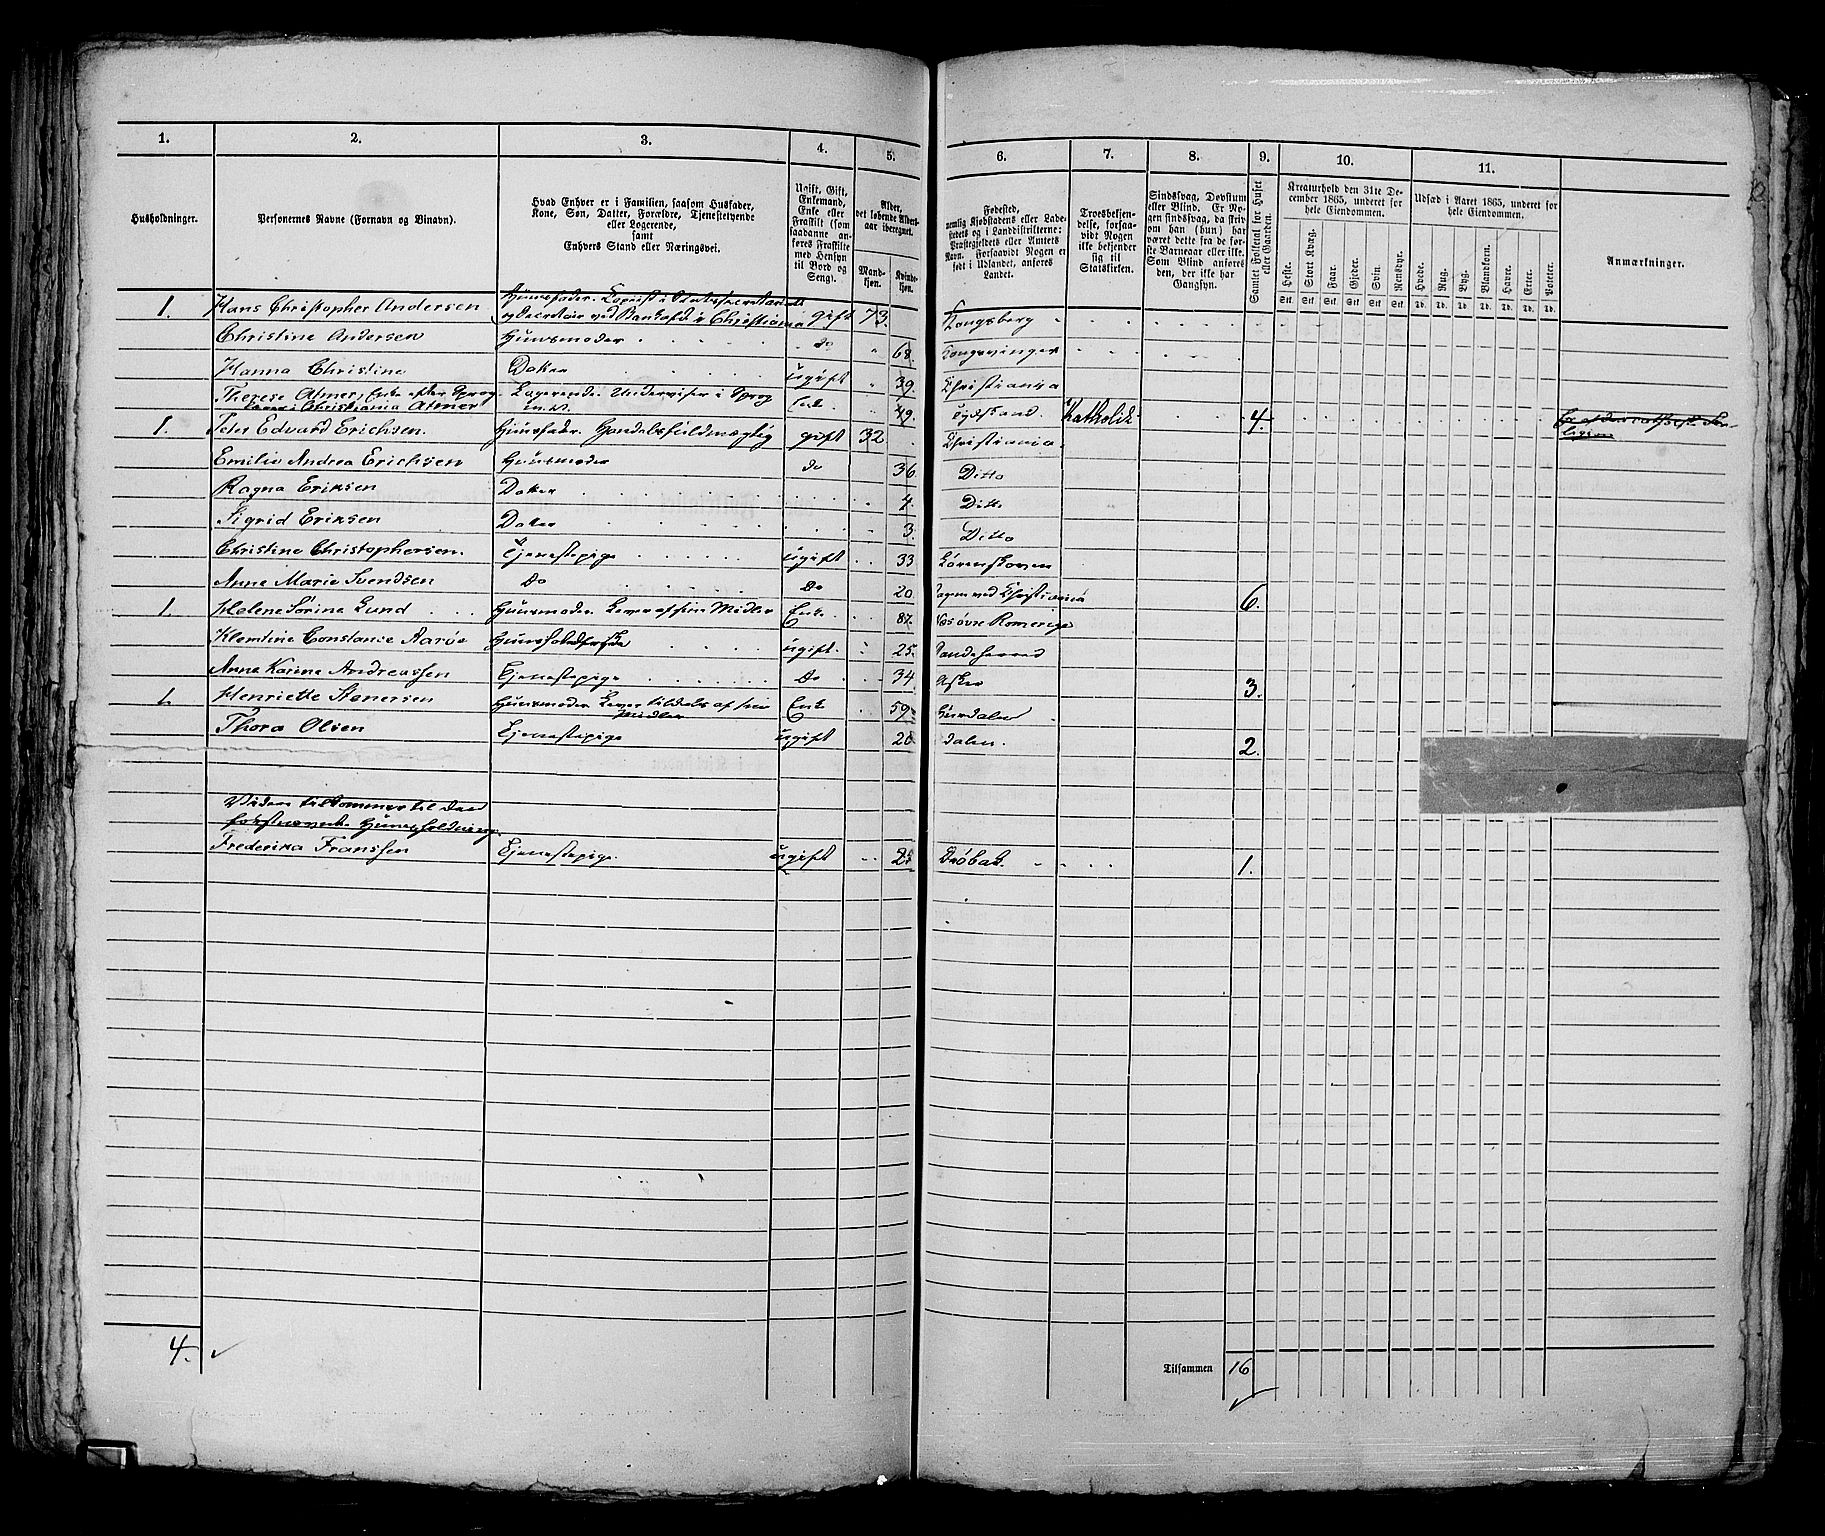 1. 2. 3. 4. 5. 6. 7. 8. 9. 10. 11.
Husholdninger.
Personernes Navne (Fornavn og Binavn).
Hvad Enhver er i Familien, saasom Husfader,
Kone, Søn, Datter, Forældre, Tjenestetyende
eller Logerende,
samt
Enhvers Stand eller Næringsvei.
Ugift, Gift,
Enkemand,
Enke eller
Fraskilt (som
saadanne an-
føres Fraskilte
med Hensyn
til Bord og
Seng).
Alder,
det løbende Alders-
aar iberegnet.
Mand-
kjøn.
Kvinde-
kjøn.
Fødested,
nemlig Kjøbstadens eller Lade-
stedets og i Landdistrikterne:
Præstegjeldets eller Amtets
Navn. Forsaavidt Nogen er
født i Udlandet, anføres
Landet.
Troesbekjen-
delse, forsaa-
vidt Nogen
ikke bekjender
sig til
Statskirken.
Sindssvag, Døvstum
eller Blind. Er No-
gen sindssvag, da skriv
om han (hun) har
været dette fra de før-
ste Barneaar eller ikke.
Som Blind anføres
den, der ikke har
Gangsyn.
Samlet Folketal for Huset
eller Gaarden.
Kreaturhold den 31te De-
cember 1865, underet for
hele Eiendommen.
Heste. Stort Kvæg. Faar. Gjeder. Svin. Rensdyr.
Stk. Stk. Stk. Stk. Stk. Stk.
Udsæd i Aaret 1865, underet for
hele Eiendommen.
Hvede. Rug. Byg. Blandkorn. Havre. Erter. Poteter.
Td. Td. Td. Td. Td. Td. Td.
Anmærkninger.
1. Hans Christopher Andersen Huusfader. Copist i Statssecretariatet
og Secretair ved Bankold i Christiania gift 73. Kongsberg
Christine Andersen Huusmoder do 68. Kongsvinger
Hanna Christine Datter ugift 39. Christiania
Therese Atmer, Enke efter Sprog- Logerende. Underviser i Sprog Enke 49. Tydskland. Katholik 4.
lærer i Christiania Atmer
1. Peter Edvard Erichsen. Huusfader. Handelsfuldmægtig gift 32 Christiania
Emilie Andrea Erichsen Huusmoder do 36. Ditto
Ragna Eriksen Datter 4. Ditto
Sigrid Eriksen Datter 3. Ditto
Christine Christophersen. Tjenestepige ugift 33 Lørenskoven
Anne Marie Svendsen Do Do 20. ved Christiania 6.
1. Helene Sørine Lund Huusmoder. Lever af sine Midler Enke. 87. Næs øvre Romerige
Klemtine Constance Aarøe ugift. 25. Sandeherred
Anne Karine Andreassen Tjenestepige Do 34 Asker 3.
1. Henriette Stenersen Huusmoder Lever tildels af sine
Midler Enke 59. Hurdalen
Thora Olsen Tjenestepige ugift 20 dalen. 2.
Videre tilkommer til den
førstnævnte Huusholdning
Frederika Franssen Tjenestepige. ugift 25 Drøbak. 1.
4.
Tilsammen 16